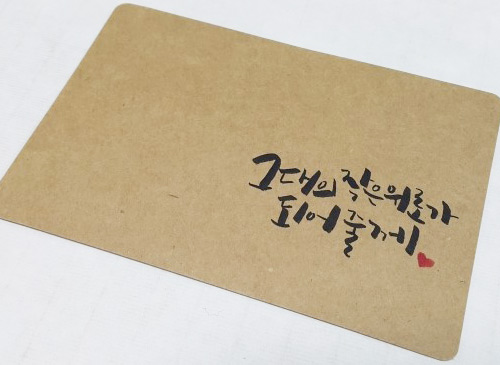 그대의 작은위로가
되어 줄께